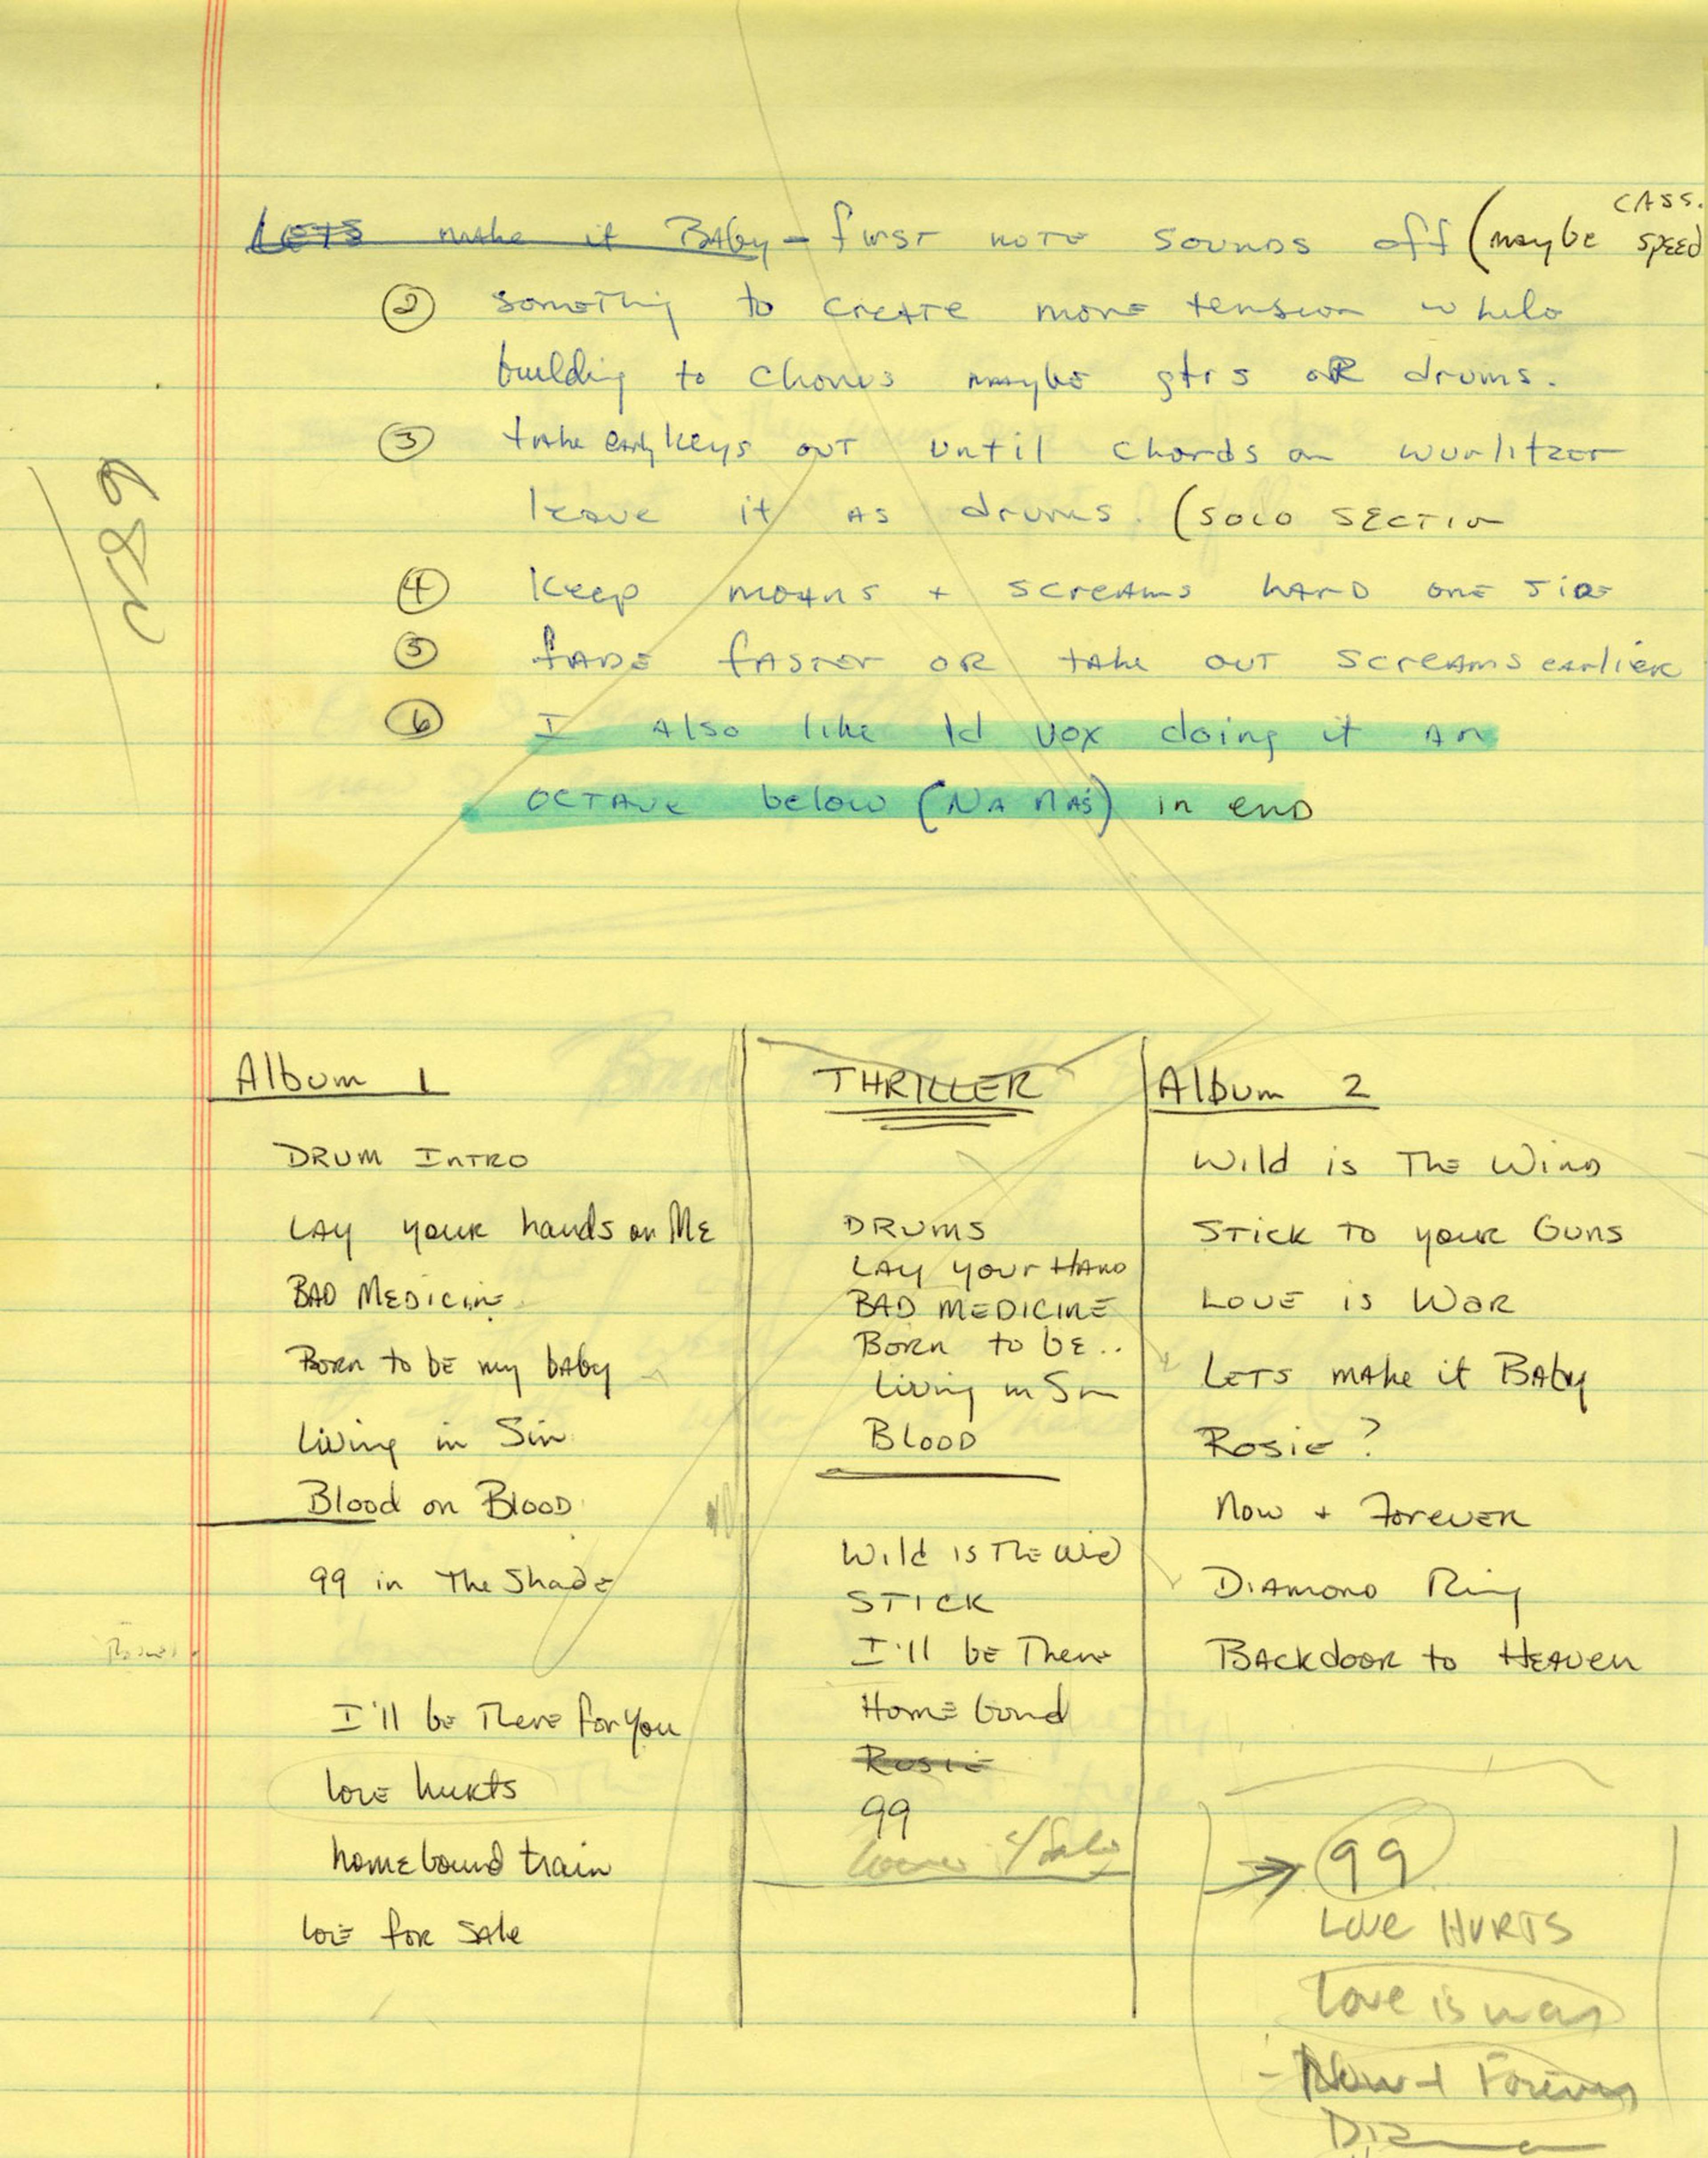 LETS make it BAby - first note sounds off (maybe CASS. speed
② something to create more tension while
building to chorus maybe gtrs OR drums.
③ take early keys out until chords on wurlitzer
leave it as drums. (solo section
④ keep moans + screams hard one side
⑤ fade faster or take out screams earlier
⑥ I also like ld vox doing it an
octave below (Na Nas) in end
Album 1
DRUM INTRO
LAY your hands on Me
BAD MEDICINE
Born to be my baby
Living in Sin
Blood on Blood
99 in The Shade
I'll be There for you
love hurts
homebound train
love for sale
THRILLER
DRUMS
LAY your HAND
BAD MEDICINE
Born to be..
Living in Sin
BLOOD
Wild is The Wid
STICK
I'll be There
Home bound
Rosie
99
Album 2
Wild is The Wind
STICK TO your GUNS
LOVE is WAR
LETS make it BAby
Rosie?
Now + Forever
DIAMOND Ring
BACKdoor to HEAVEN
99
LOVE HURTS
Love is war
Now + Forever